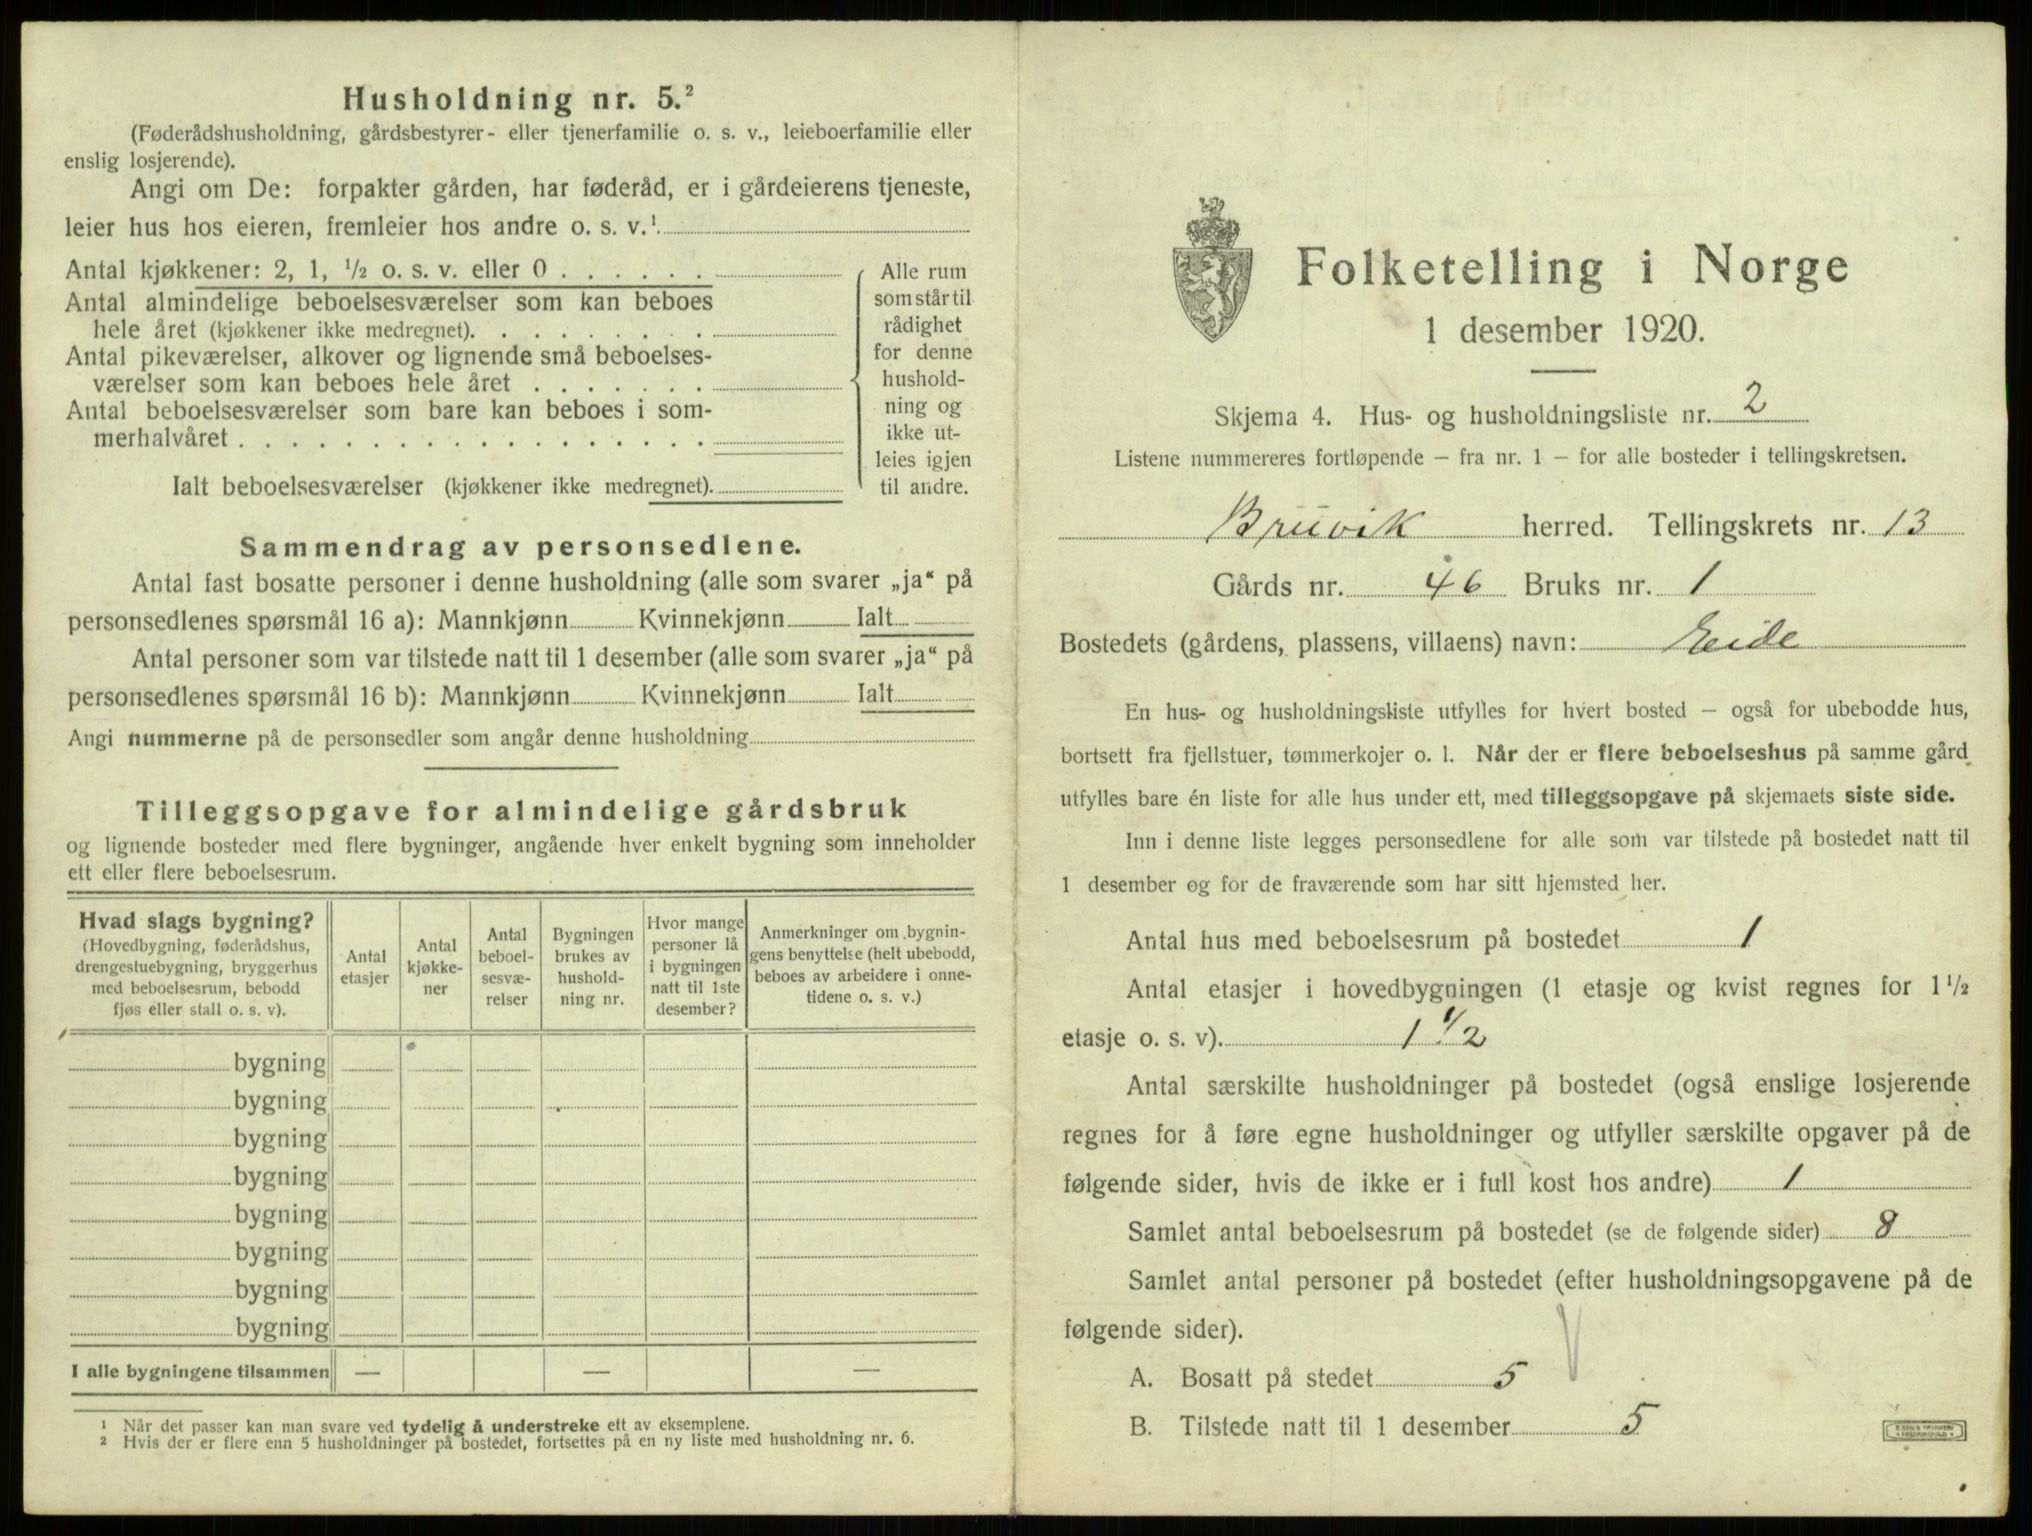 Husholdning nr. 5.²
(Føderådshusholdning, gårdsbestyrer- eller tjenerfamilie o. s. v., leieboerfamilie eller
enslig losjerende).
Angi om De: forpakter gården, har føderåd, er i gårdeierens tjeneste,
leier hus hos eieren, fremleier hos andre o. s. v.¹
Antal kjøkkener: 2, 1, ½ o. s. v. eller 0 . . . . . .
Antal almindelige beboelsesværelser som kan beboes
hele året (kjøkkener ikke medregnet). . . . . . . .
Antal pikeværelser, alkover og lignende små beboelses-
værelser som kan beboes hele året . . . . . . .
Antal beboelsesværelser som bare kan beboes i som-
merhalvåret . . . . . . . . . . . . . . . . . .
Ialt beboelsesværelser (kjøkkener ikke medregnet).
Alle rum
som står til
rådighet
for denne
hushold-
ning og
ikke ut-
leies igjen
til andre.
Sammendrag av personsedlene.
Antal fast bosatte personer i denne husholdning (alle som svarer „ja“ på
personsedlenes spørsmål 16 a): Mannkjønn Kvinnekjønn Ialt
Antal personer som var tilstede natt til 1 desember (alle som svarer „ja“ på
personsedlenes spørsmål 16 b): Mannkjønn Kvinnekjønn Ialt
Angi nummerne på de personsedler som angår denne husholdning
Tilleggsopgave for almindelige gårdsbruk
og lignende bosteder med flere bygninger, angående hver enkelt bygning som inneholder
ett eller flere beboelsesrum.
Hvad slags bygning?
(Hovedbygning, føderådshus,
drengestuebygning, bryggerhus
med beboelsesrum, bebodd
fjøs eller stall o. s. v).
Antal
etasjer
Antal
kjøkke-
ner
Antal
beboel-
sesvæ-
relser
Bygningen
brukes av
hushold-
ning nr.
Hvor mange
personer lå
i bygningen
natt til 1ste
desember?
Anmerkninger om bygnin-
gens benyttelse (helt ubebodd,
beboes av arbeidere i onne-
tidene o. s. v.)
bygning
bygning
bygning
bygning
bygning
bygning
bygning
bygning
I alle bygningene tilsammen — — —
¹ Når det passer kan man svare ved tydelig å understreke ett av eksemplene.
² Hvis der er flere enn 5 husholdninger på bostedet, fortsettes på en ny liste med husholdning nr. 6.
Folketelling i Norge
1 desember 1920.
Skjema 4. Hus- og husholdningsliste nr. 2
Listene nummereres fortløpende – fra nr. 1 – for alle bosteder i tellingskretsen.
Bruvik herred. Tellingskrets nr. 13
Gårds nr. 46 Bruks nr. 1
Bostedets (gårdens, plassens, villaens) navn: Eide
En hus- og husholdningsliste utfylles for hvert bosted – også for ubebodde hus,
bortsett fra fjellstuer, tømmerkojer o. l. Når der er flere beboelseshus på samme gård
utfylles bare én liste for alle hus under ett, med tilleggsopgave på skjemaets siste side.
Inn i denne liste legges personsedlene for alle som var tilstede på bostedet natt til
1 desember og for de fraværende som har sitt hjemsted her.
Antal hus med beboelsesrum på bostedet 1
Antal etasjer i hovedbygningen (1 etasje og kvist regnes for 1½
etasje o. s. v). 1 1/2
Antal særskilte husholdninger på bostedet (også enslige losjerende
regnes for å føre egne husholdninger og utfyller særskilte opgaver på de
følgende sider, hvis de ikke er i full kost hos andre) 1
Samlet antal beboelsesrum på bostedet (se de følgende sider) 8
Samlet antal personer på bostedet (efter husholdningsopgavene på de
følgende sider).
A. Bosatt på stedet 5
B. Tilstede natt til 1 desember 5